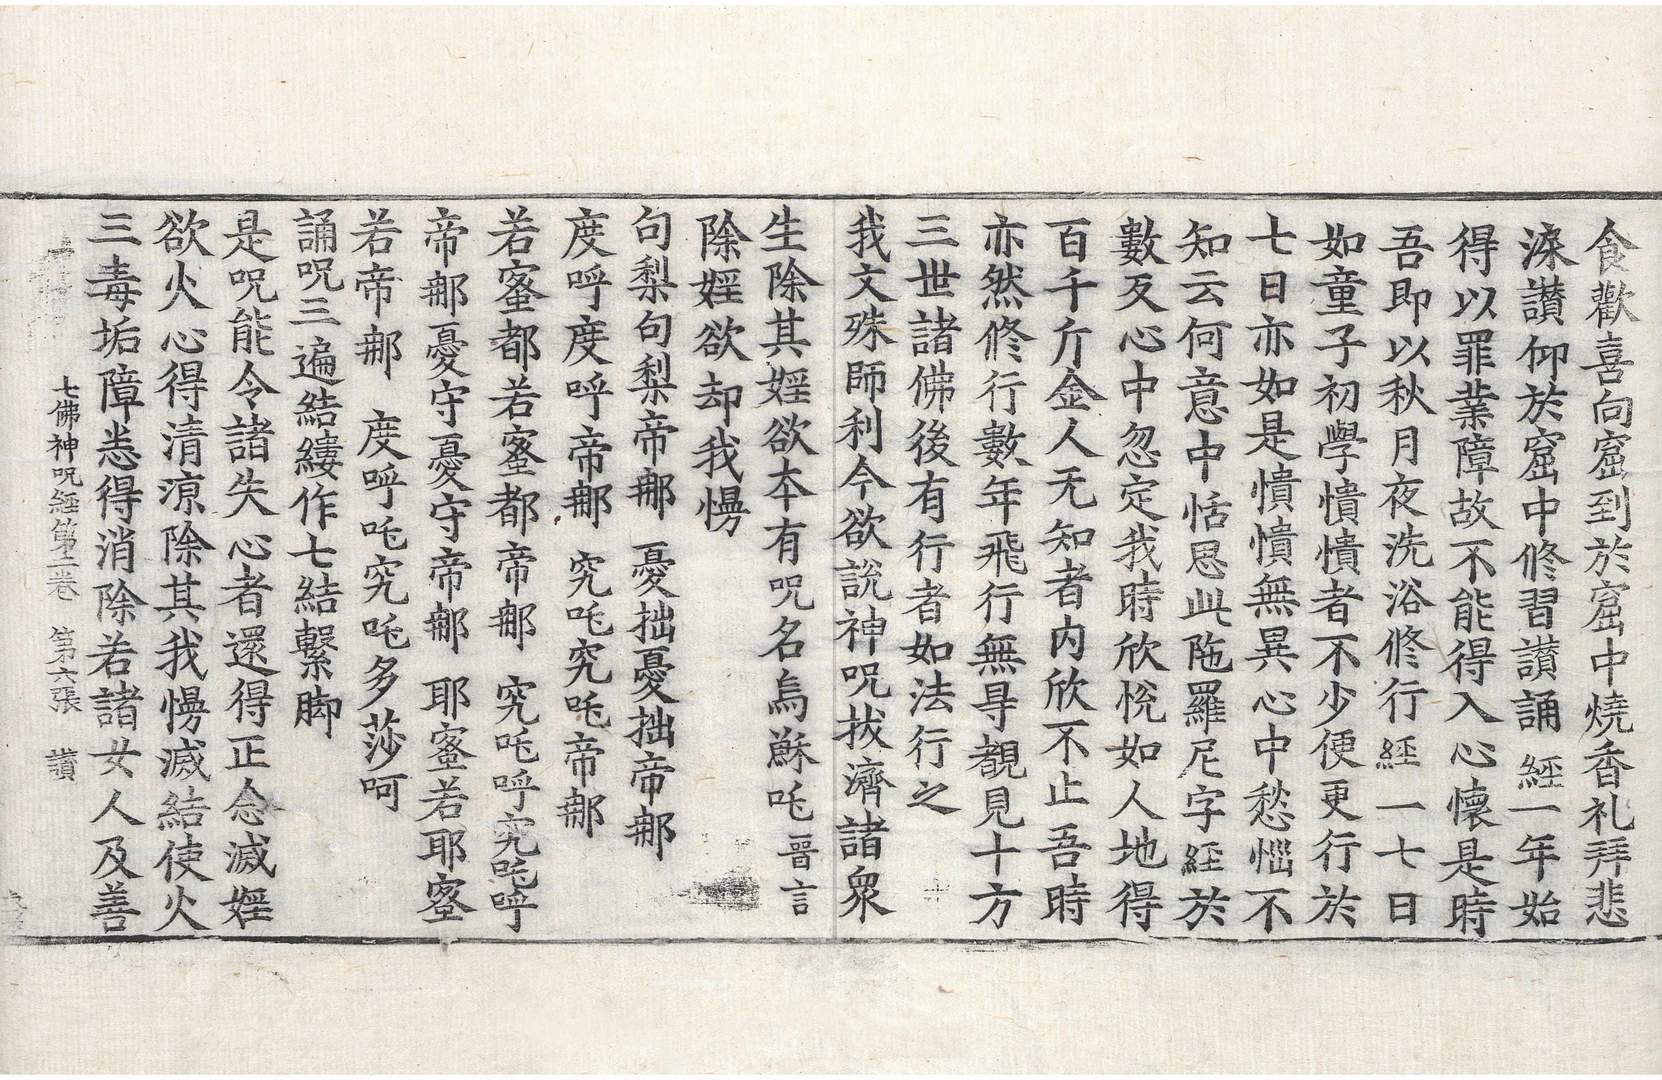 食歡喜向窟到於窟中燒香礼拜悲
淚讃仰於窟中修習讃誦經一年始
得以罪業障故不能得入心懷是時
吾即以秋月夜洗浴修行經一七日
如童子初學憒憒者不少便更行於
七日亦如是憒憒無異心中愁惱不
知云何意中恬思此陁羅尼字經於
數反心中忽定我時欣悅如人地得
百千斤金人无知者内欣不止吾時
亦然修行數年飛行無㝵覩見十方
三世諸佛後有行者如法行之
我文殊師利今欲說神呪拔濟諸衆
生除其婬欲本有呪名烏蘇吒晉言
除婬欲却我慢
句梨句梨帝那 憂拙憂拙帝那
度呼度呼帝那 究吒究吒帝那
若蜜都若蜜都帝那 究吒呼究吒呼
帝那憂守憂守帝那 耶蜜若耶蜜
若帝那 度呼吒究吒多莎呵
誦呪三遍結縷作七結繫脚
是呪能令諸失心者還得正念滅婬
欲火心得清涼除其我慢滅結使火
三毒垢障悉得消除若諸女人及善
七佛神呪經第二卷 第六張 讃